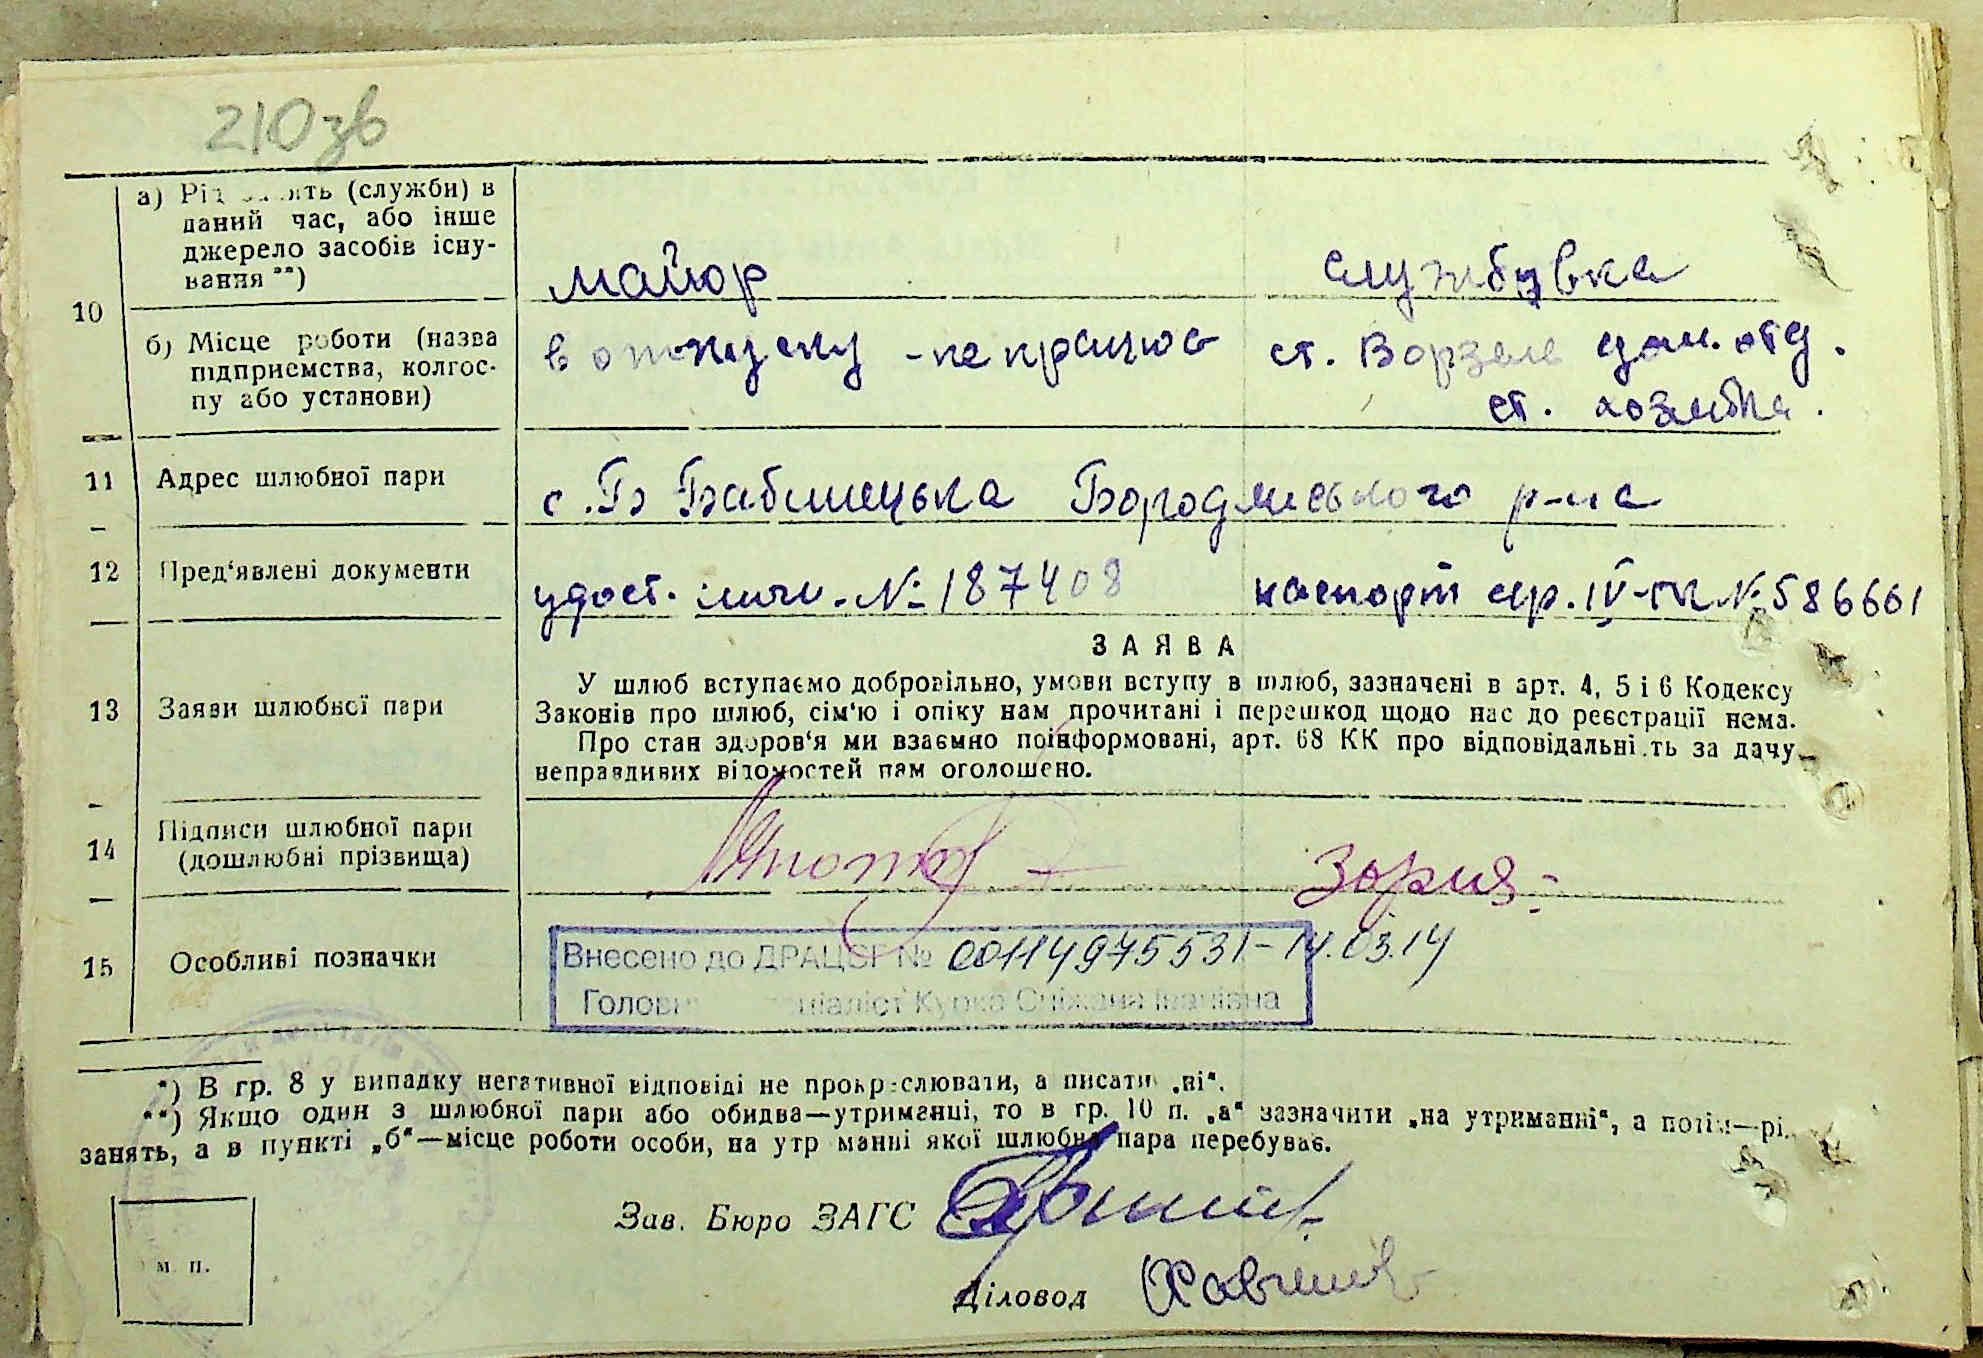 210зв
а) Рід занять (служби) в
даний час, або інше
джерело засобів існу-
вання **)
майор службувка
10
б) Місце роботи (назва
підприємства, колгос-
пу або установи)
в отпуску - не працює ст. Ворзель дом. отд.
ст. хозяйка.
11 Адрес шлюбної пари
с. Бабинецька Бородянського р-на
12 Пред'явлені документи
удост. личн. № 187408 паспорт сер. IV-ГК № 586661
ЗАЯВА
13 Заяви шлюбної пари
У шлюб вступаємо добровільно, умови вступу в шлюб, зазначені в арт. 4, 5 і 6 Кодексу
Законів про шлюб, сім'ю і опіку нам прочитані і перешкод щодо нас до реєстрації нема.
Про стан здоров'я ми взаємно поінформовані, арт. 68 КК про відповідальність за дачу
неправдивих відомостей нам оголошено.
14 Підписи шлюбної пари
(дошлюбні прізвища)
Зория
15 Особливі позначки
Внесено до ДРАЦСГ № 00114975531 - 14.03.14
Головний спеціаліст Курко Сніжана Іванівна
*) В гр. 8 у випадку негативної відповіді не прокреслювати, а писати „ні“.
**) Якщо один з шлюбної пари або обидва—утриманці, то в гр. 10 п. „а“ зазначити „на утриманні“, а потім—рід
занять, а в пункті „б“—місце роботи особи, на утриманні якої шлюбна пара перебуває.
Зав. Бюро ЗАГС
м. п.
Діловод